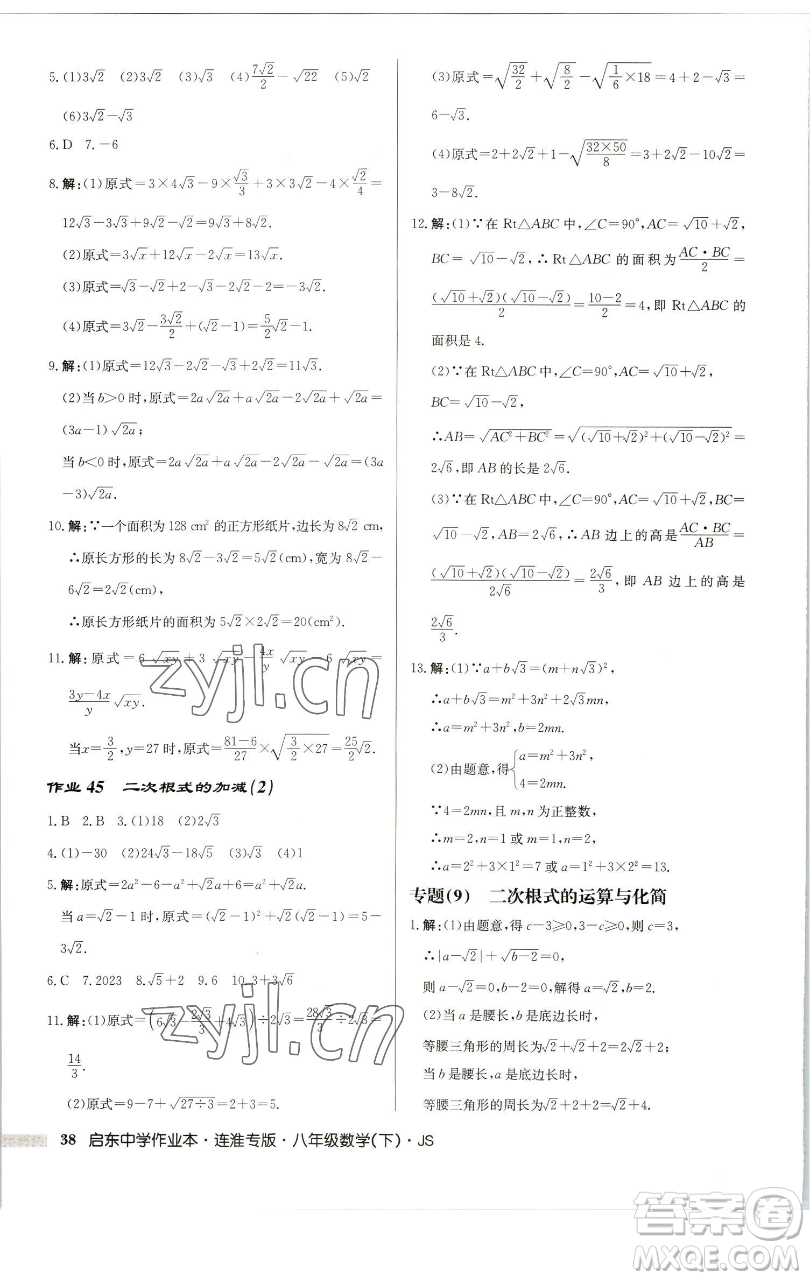 5. (1)3√2  (2)3√2  (3)√3  (4)7√2/2－√22  (5)√2
(6)3√2－√3
6. D  7. －6
8. 解:(1)原式＝3×4√3－9×√3/3＋3×3√2－4×√2/4＝
12√3－3√3＋9√2－√2＝9√3＋8√2.
(2)原式＝3√x＋12√x－2√x＝13√x.
(3)原式＝√3－√2＋√3－2√2－2＝2√3－3√2－2.
(4)原式＝3√2－3√2/2＋(√2－1)＝5√2/2－1.
9. 解:(1)原式＝12√3－2√2－√3＋2√2＝11√3.
(2)当b＞0时,原式＝2a√2a＋a√2a－2√2a＋√2a＝
(3a－1)√2a;
当b＜0时,原式＝2a√2a＋a√2a－2√2a－√2a＝(3a
－3)√2a.
10. 解:∵一个面积为128 cm²的正方形纸片,边长为8√2 cm,
∴原长方形的长为8√2－3√2＝5√2(cm),宽为8√2－
6√2＝2√2(cm).
∴原长方形纸片的面积为5√2×2√2＝20(cm²).
11. 解:原式＝6√xy＋3√xy－4x/y√xy－6√xy＝
3y－4x/y √xy.
当x＝3/2,y＝27时,原式＝81－6/27×√(3/2×27)＝25/2√2.
作业45  二次根式的加减(2)
1. B  2. B  3. (1)18  (2)2√3
4. (1)－30  (2)24√3－18√5  (3)√3  (4)1
5. 解:原式＝2a²－6－a²＋√2a＋6＝a²＋√2a.
当a＝√2－1时,原式＝(√2－1)²＋√2(√2－1)＝5－
3√2.
6. C  7. 2023  8. √5＋2  9. 6  10. 3＋√6
11. 解:(1)原式＝(6√3－2√3/3＋4√3)÷2√3＝28√3/3÷2√3＝
14/3.
(2)原式＝9－7＋√(27÷3)＝2＋3＝5.
(3)原式＝√(32/2)＋√(8/2)－√(1/6×18)＝4＋2－√3＝
6－√3.
(4)原式＝2＋2√2＋1－√(32×50/8)＝3＋2√2－10√2＝
3－8√2.
12. 解:(1)∵在Rt△ABC中,∠C＝90°,AC＝√10＋√2,
BC＝√10－√2,∴Rt△ABC的面积为AC·BC/2＝
(√10＋√2)(√10－√2)/2＝10－2/2＝4,即Rt△ABC的
面积是4.
(2)∵在Rt△ABC中,∠C＝90°,AC＝√10＋√2,
BC＝√10－√2,
∴AB＝√(AC²＋BC²)＝√((√10＋√2)²＋(√10－√2)²)＝
2√6,即AB的长是2√6.
(3)∵在Rt△ABC中,∠C＝90°,AC＝√10＋√2,BC＝
√10－√2,AB＝2√6,∴AB边上的高是AC·BC/AB＝
(√10＋√2)(√10－√2)/2√6＝2√6/3,即AB边上的高是
2√6/3.
13. 解:(1)∵a＋b√3＝(m＋n√3)²,
∴a＋b√3＝m²＋3n²＋2√3mn,
∴a＝m²＋3n²,b＝2mn.
(2)由题意,得{a＝m²＋3n²,
4＝2mn.
∵4＝2mn,且m,n为正整数,
∴m＝2,n＝1或m＝1,n＝2,
∴a＝2²＋3×1²＝7或a＝1²＋3×2²＝13.
专题(9)  二次根式的运算与化简
1. 解:(1)由题意,得c－3≥0,3－c≥0,则c＝3,
∴|a－√2|＋√(b－2)＝0,
则a－√2＝0,b－2＝0,解得a＝√2,b＝2.
(2)当a是腰长,b是底边长时,
等腰三角形的周长为√2＋√2＋2＝2√2＋2;
当b是腰长,a是底边长时,
等腰三角形的周长为√2＋2＋2＝√2＋4.
38  启东中学作业本·连淮专版·八年级数学(下)·JS
zyjl.cn
zyjl.cn
答案卷
MXQE.COM